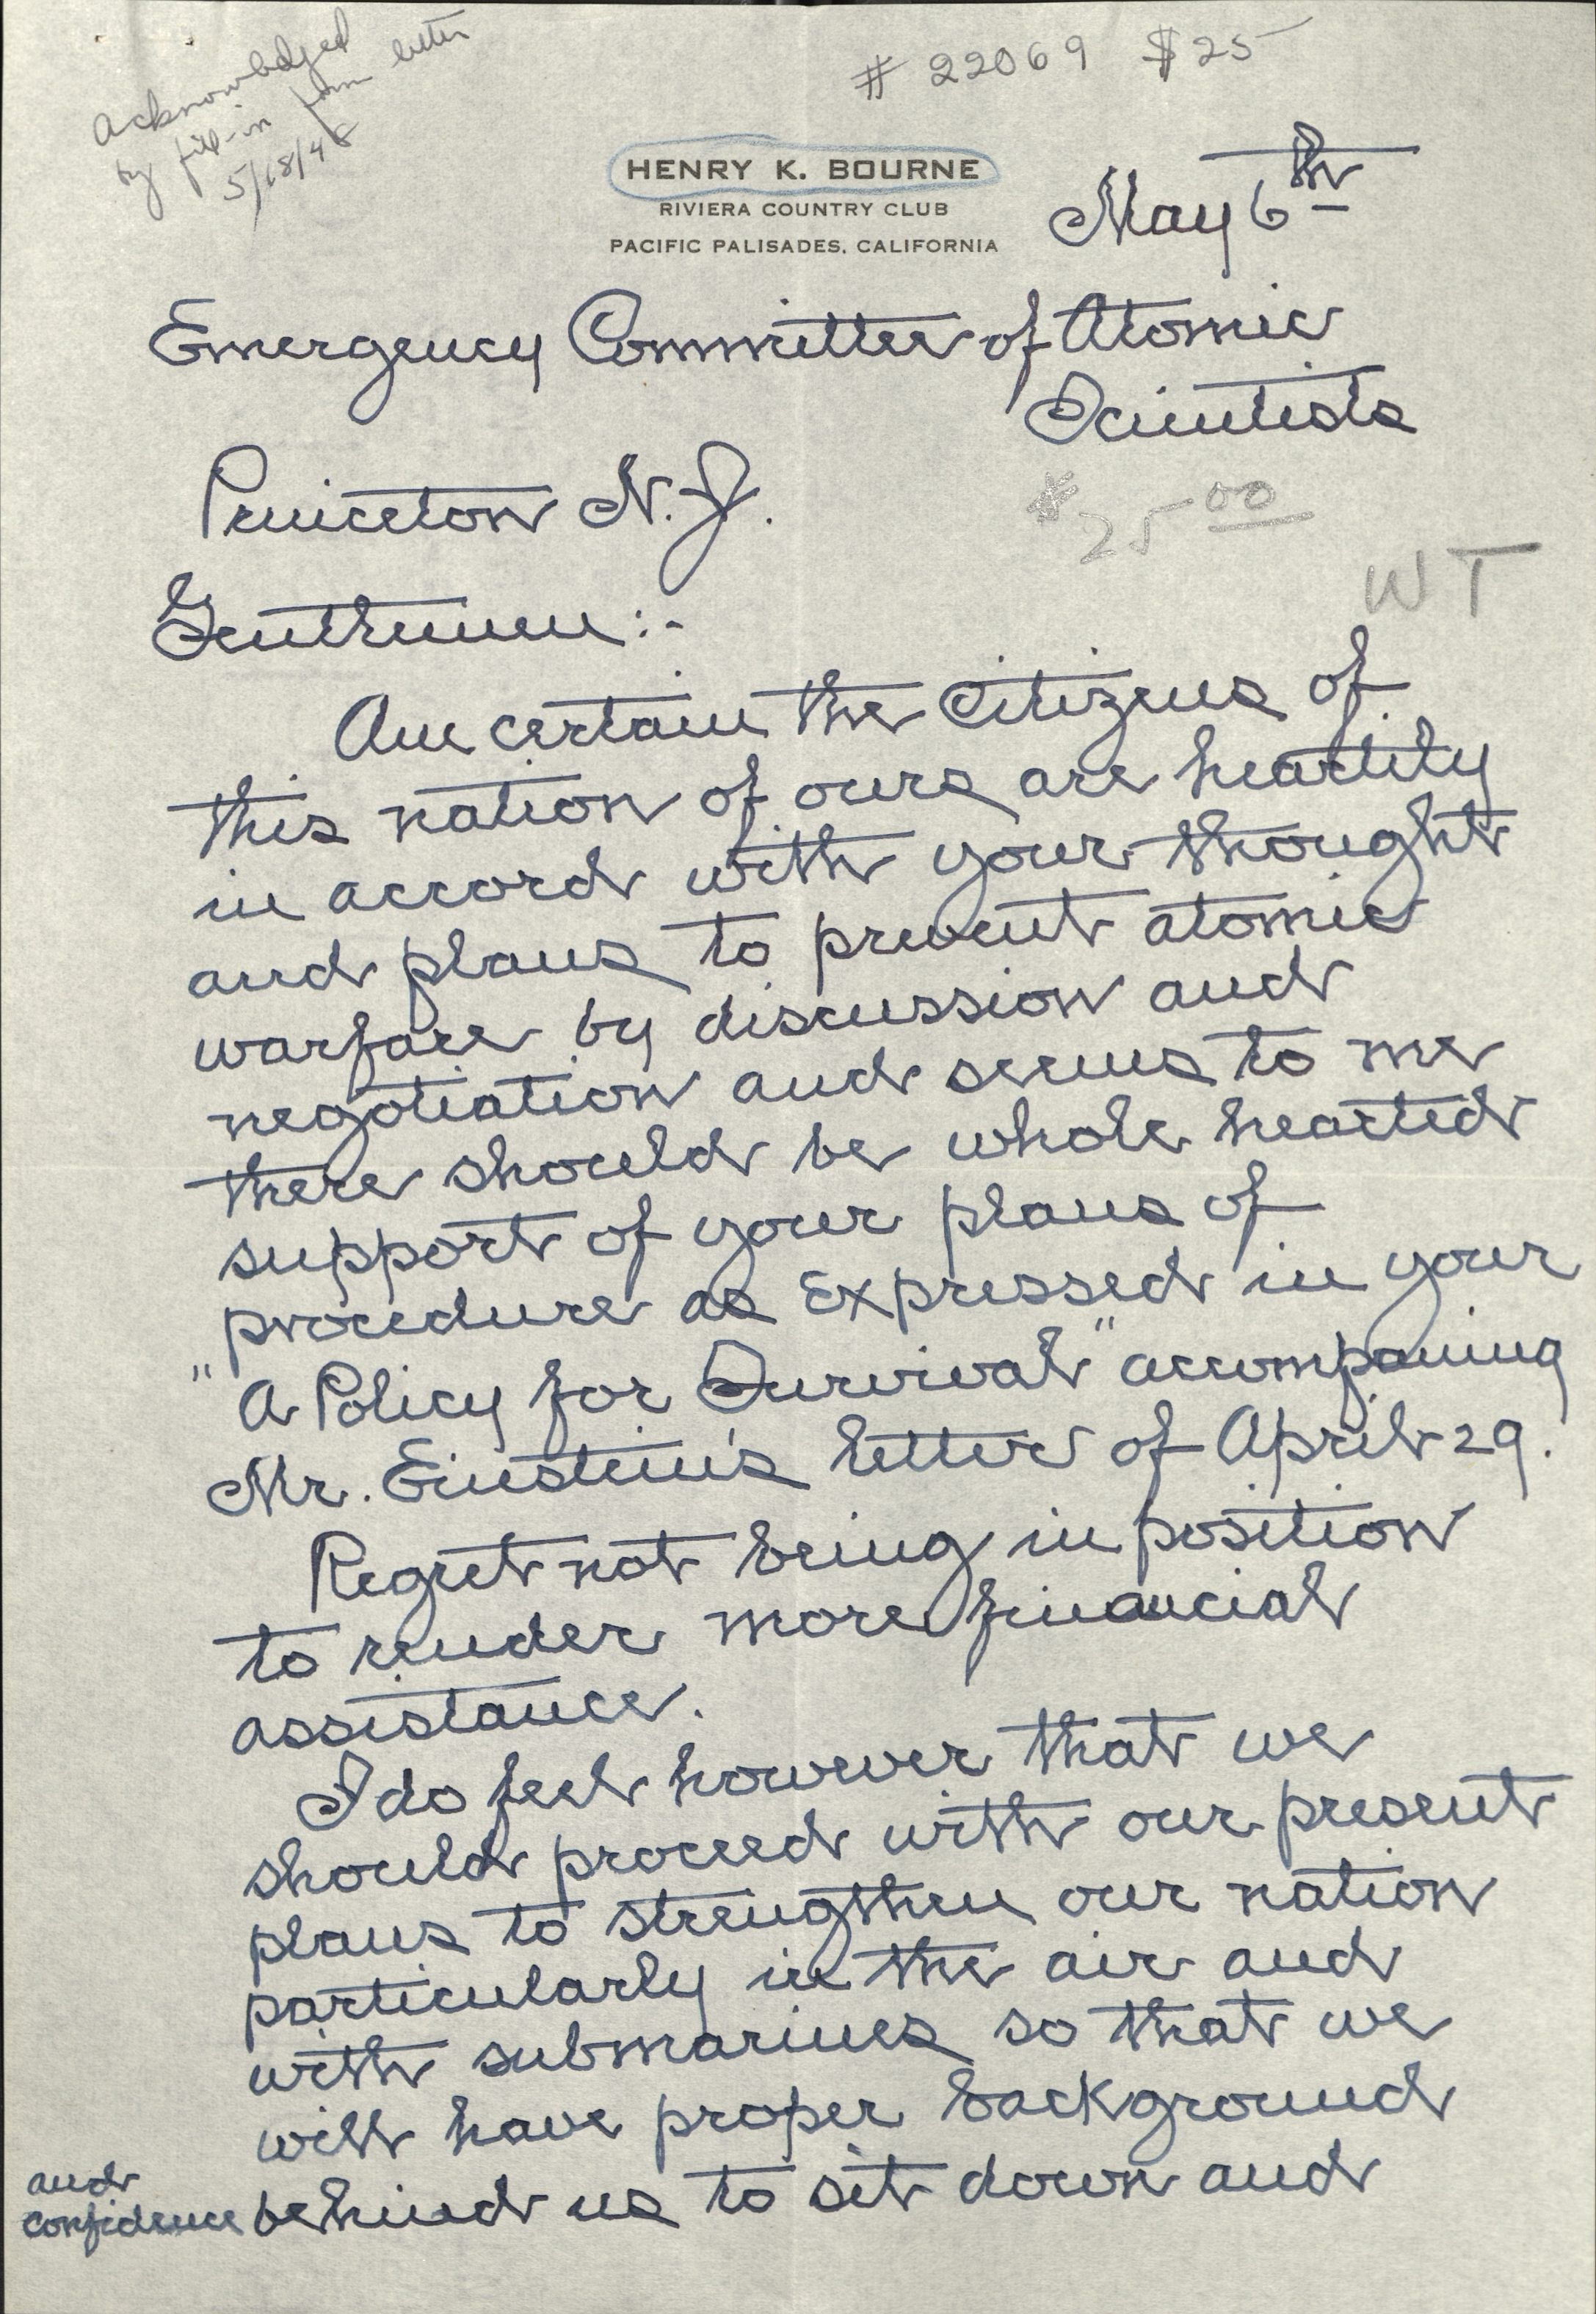 Acknowledged
by fill-in form letter
5/18/48
# 22069 $25
HENRY K. BOURNE
RIVIERA COUNTRY CLUB
PACIFIC PALISADES, CALIFORNIA
May 6th
Emergency Committee of Atomic
Scientists
Princeton N.J.
$25.00
WT
Gentlemen:-
Am certain the citizens of
this nation of ours are heartily
in accord with your thought
and plans to prevent atomic
warfare by discussion and
negotiation and seems to me
there should be whole hearted
support of your plans of
procedure as expressed in your
"A Policy for Survival" accompaning
Mr. Einstein's letter of April 29.
Regret not being in position
to render more financial
assistance.
I do feel however that we
should proceed with our present
plans to strengthen our nation
particularly in the air and
with submarines so that we
will have proper background
and
confidence behind us to sit down and